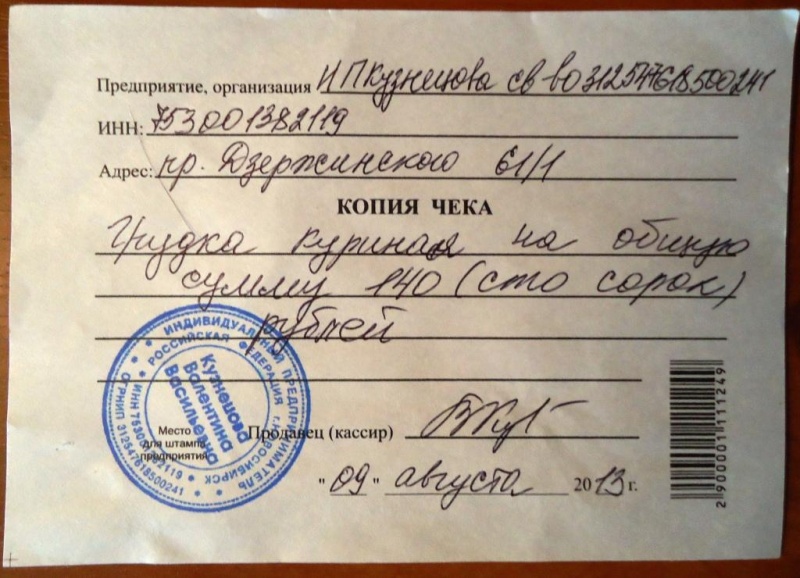 Предприятие, организация ИП Кузнецова св во 312547618500241
ИНН: 753001382119
Адрес: пр. Дзержинского 61/1
КОПИЯ ЧЕКА
Грудка куриная на общую
сумму 140 (сто сорок)
рублей
ИНДИВИДУАЛЬНЫЙ ПРЕДПРИНИМАТЕЛЬ
РОССИЙСКАЯ ФЕДЕРАЦИЯ г. НОВОСИБИРСК
ОГРНИП 312547618500241
ИНН 753001382119
Кузнецова
Валентина
Васильевна
Место
для штампа
предприятия
Продавец (кассир)
"09" августа 2013 г.
2 900001 111249